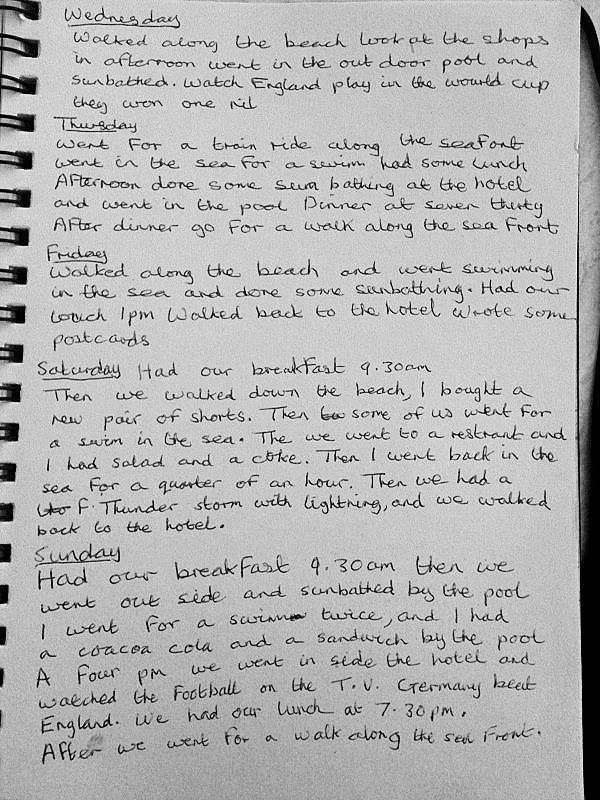 Wednesday
Walked along the beach look at the shops
in afternoon went in the out door pool and
sunbathed. Watch England play in the would cup
they won one nil
Thursday
Went For a train ride along the seafont
went in the sea for a swim had some lunch
Afternoon done some sun bathing at the hotel
and went in the pool Dinner at seven thirty
After dinner go For a walk along the sea Front
Friday
Walked along the beach and went swimming
in the sea and done some sunbathing. Had our
1pm Walked back to the hotel wrote some
postcards
Saturday Had our breakfast 9.30am
Then we walked down the beach, I bought a
new pair of shorts. Then some of us went For
a swim in the sea. The we went to a restrant and
I had salad and a coke. Then I went back in the
sea For a quarter of an hour. Then we had a
F. Thunder storm with lightning, and we walked
back to the hotel.
Sunday
Had our breakFast 9.30am then we
went out side and sunbathed by the pool
I went For a swim twice, and I had
a coacoa cola and a sandwich by the pool
A Four pm we went in side the hotel and
watched the Football on the T.V. Germany beat
England. We had our lunch at 7.30pm.
After we went for a walk along the sea Front.